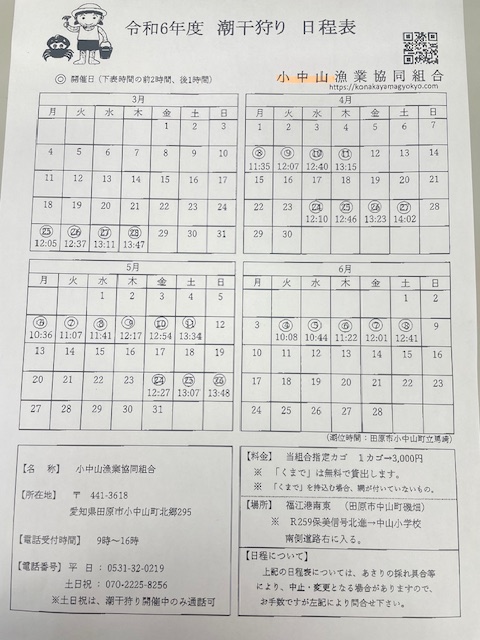 令和6年度 潮干狩り 日程表
◎ 開催日(下表時間の前2時間、後1時間)
小中山漁業協同組合
https://konakayamagyokyo.com
3月
月 火 水 木 金 土 日
1 2 3
4 5 6 7 8 9 10
11 12 13 14 15 16 17
18 19 20 21 22 23 24
㉕ ㉖ ㉗ ㉘ 29 30 31
12:05 12:37 13:11 13:47
4月
月 火 水 木 金 土 日
1 2 3 4 5 6 7
⑧ ⑨ ⑩ ⑪ 12 13 14
11:35 12:07 12:40 13:15
15 16 17 18 19 20 21
22 23 ㉔ ㉕ ㉖ ㉗ 28
12:10 12:46 13:23 14:02
29 30
5月
月 火 水 木 金 土 日
1 2 3 4 5
⑥ ⑦ ⑧ ⑨ ⑩ ⑪ 12
10:36 11:07 11:41 12:17 12:54 13:34
13 14 15 16 17 18 19
20 21 22 23 ㉔ ㉕ ㉖
12:27 13:07 13:48
27 28 29 30 31
6月
月 火 水 木 金 土 日
1 2
3 ④ ⑤ ⑥ ⑦ ⑧ 9
10:08 10:44 11:22 12:01 12:41
10 11 12 13 14 15 16
17 18 19 20 21 22 23
24 25 26 27 28
(潮位時間:田原市小中山町立馬崎)
【名 称】 小中山漁業協同組合
【所在地】 〒 441-3618
愛知県田原市小中山町北郷295
【電話受付時間】 9時~16時
【電話番号】 平 日:0531-32-0219
土日祝:070-2225-8256
※土日祝は、潮干狩り開催中のみ通話可
【料金】 当組合指定カゴ 1カゴ→3,000円
※ 「くまで」は無料で貸出します。
※ 「くまで」を持込む場合、網が付いていないもの。
【場所】 福江港南東 (田原市中山町磯畑)
※ R259保美信号北進→中山小学校
南側道路右に入る。
【日程について】
上記の日程表については、あさりの採れ具合等
により、中止・変更となる場合がありますので、
お手数ですが左記により問合せ下さい。